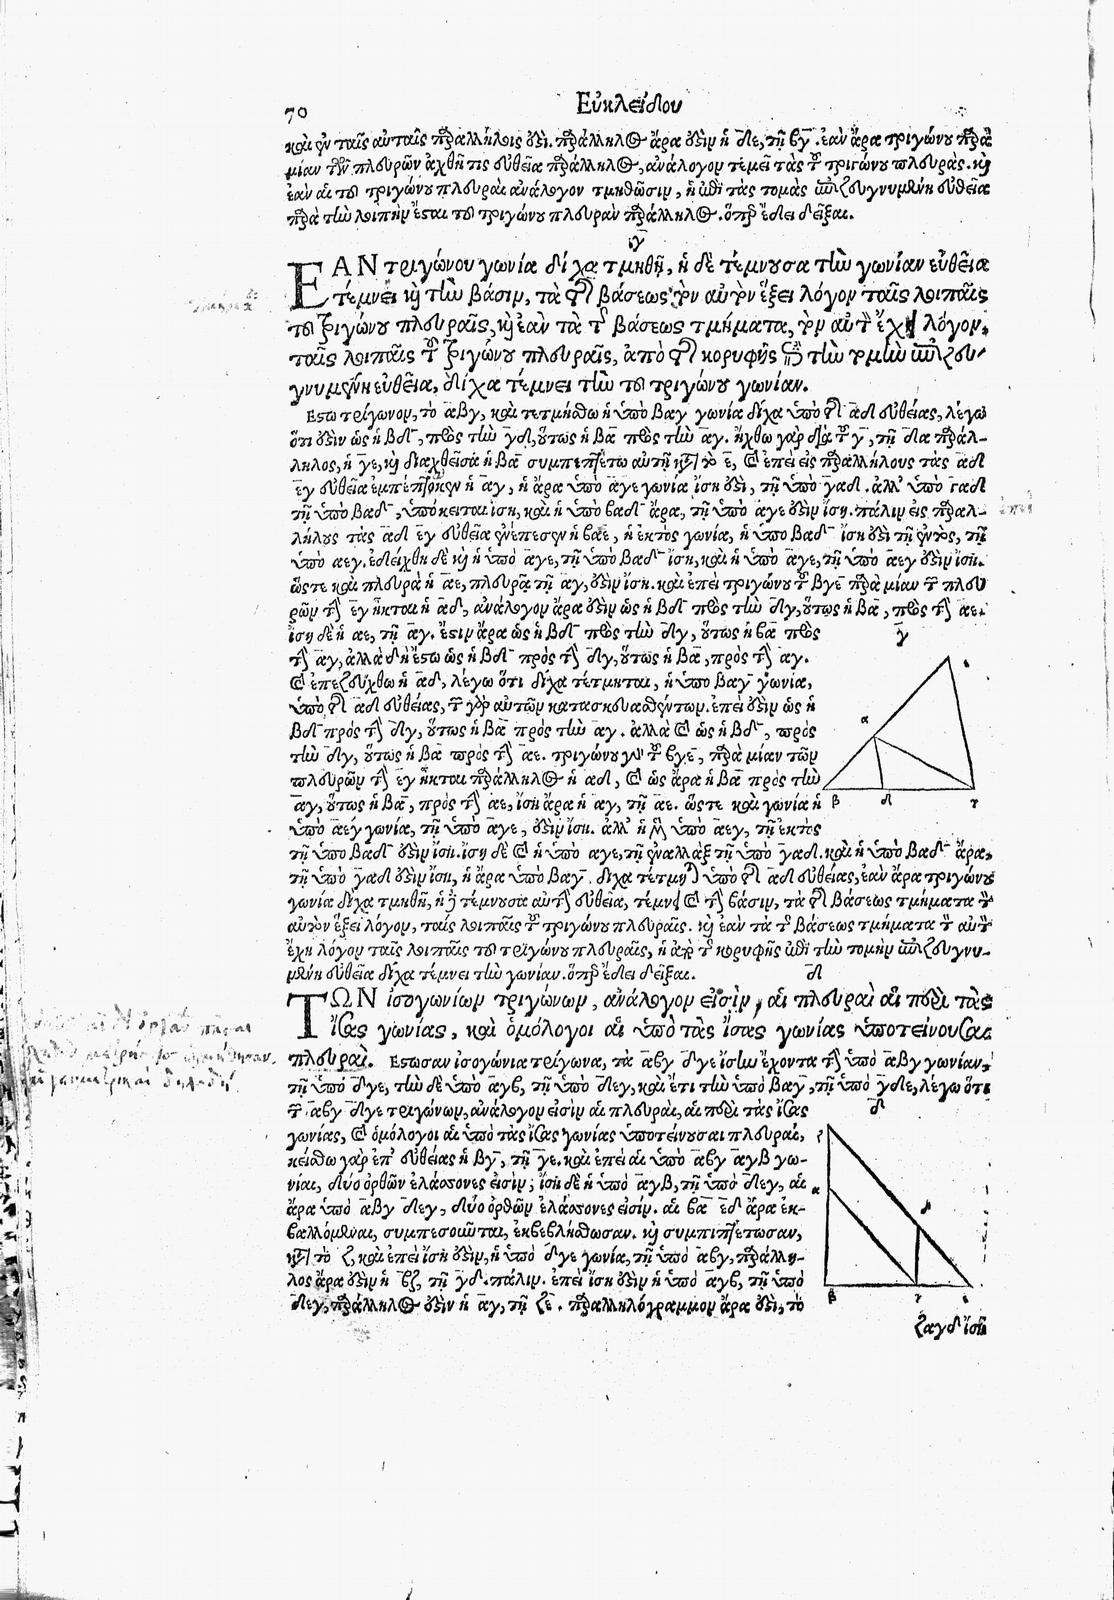 70
Εὐκλείδου
καὶ ἐν ταῖς αὐταῖς παραλλήλοις ἐστὶ. παράλληλος ἄρα ἐστὶν ἡ δε, τῇ βγ. ἐὰν ἄρα τριγώνου παρὰ
μίαν τῶν πλευρῶν ἀχθῇ τις εὐθεῖα παράλληλος, ἀνάλογον τεμεῖ τὰς τοῦ τριγώνου πλευράς. καὶ
ἐὰν αἱ τοῦ τριγώνου πλευραὶ ἀνάλογον τμηθῶσιν, ἡ ἐπὶ τὰς τομὰς ἐπιζευγνυμένη εὐθεῖα
παρὰ τὴν λοιπὴν ἔσται τοῦ τριγώνου πλευρὰν παράλληλος. ὅπερ ἔδει δεῖξαι.
γ
ΕΑΝ τριγώνου γωνία δίχα τμηθῇ, ἡ δὲ τέμνουσα τὴν γωνίαν εὐθεῖα
τέμνει καὶ τὴν βάσιν, τὰ τῆς βάσεως τὸν αὐτὸν ἕξει λόγον ταῖς λοιπαῖς
τοῦ τριγώνου πλευραῖς, καὶ ἐὰν τὰ τῆς βάσεως τμήματα, τὸν αὐτὸν ἔχῃ λόγον,
ταῖς λοιπαῖς τοῦ τριγώνου πλευραῖς, ἀπὸ τῆς κορυφῆς ἐπὶ τὴν τομὴν ἐπιζευ-
γνυμένη εὐθεῖα, δίχα τέμνει τὴν τοῦ τριγώνου γωνίαν.
Εστω τρίγωνον, τὸ αβγ, καὶ τετμήσθω ἡ ὑπὸ βαγ γωνία δίχα ὑπὸ τῆς αδ εὐθείας, λέγω
ὅτι ἐστὶν ὡς ἡ βδ, πρὸς τὴν γδ, οὕτως ἡ βα πρὸς τὴν αγ. ἤχθω γὰρ διὰ τοῦ γ, τῇ δα παράλ-
ληλος, ἡ γε, καὶ διαχθεῖσα ἡ βα συμπιπτέτω αὐτῇ κατὰ τὸ ε, καὶ ἐπεὶ εἰς παραλλήλους τὰς αδ
εγ εὐθεῖα ἐμπέπτωκεν ἡ αγ, ἡ ἄρα ὑπὸ αγε γωνία ἴση ἐστὶ, τῇ ὑπὸ γαδ. ἀλλ' ὑπὸ γαδ
τῇ ὑπὸ βαδ, ὑπόκειται ἴση, καὶ ἡ ὑπὸ βαδ ἄρα, τῇ ὑπὸ αγε ἐστὶν ἴση. πάλιν εἰς παραλ-
λήλους τὰς αδ εγ εὐθεῖα ἐνέπεσεν ἡ βαε, ἡ ἐκτὸς γωνία, ἡ ὑπὸ βαδ ἴση ἐστὶ τῇ ἐντὸς, τῇ
ὑπὸ αεγ. ἐδείχθη δὲ καὶ ἡ ὑπὸ αγε, τῇ ὑπὸ βαδ ἴση, καὶ ἡ ὑπὸ αγε, τῇ ὑπὸ αεγ ἐστὶν ἴση.
ὥστε καὶ πλευρὰ ἡ αε, πλευρᾷ τῇ αγ, ἐστὶν ἴση. καὶ ἐπεὶ τριγώνου τοῦ βγε παρὰ μίαν τῶν πλευ
ρῶν τὴν εγ ἦκται ἡ αδ, ἀνάλογον ἄρα ἐστὶν ὡς ἡ βδ πρὸς τὴν δγ, οὕτως ἡ βα, πρὸς τὴν αε.
ἴση δὲ ἡ αε, τῇ αγ. ἔστιν ἄρα ὡς ἡ βδ πρὸς τὴν δγ, οὕτως ἡ βα πρὸς
τὴν αγ, ἀλλὰ δὴ ἔστω ὡς ἡ βδ πρὸς τὴν δγ, οὕτως ἡ βα, πρὸς τὴν αγ.
καὶ ἐπεζεύχθω ἡ αδ, λέγω ὅτι δίχα τέτμηται, ἡ ὑπὸ βαγ γωνία,
ὑπὸ τῆς αδ εὐθείας, τῶν γὰρ αὐτῶν κατασκευασθέντων. ἐπεί ἐστιν ὡς ἡ
βδ πρὸς τὴν δγ, οὕτως ἡ βα πρὸς τὴν αγ. ἀλλὰ καὶ ὡς ἡ βδ, πρὸς
τὴν δγ, οὕτως ἡ βα πρὸς τὴν αε. τριγώνου γὰρ τοῦ βγε, παρὰ μίαν τῶν
πλευρῶν τὴν εγ ἦκται παράλληλος ἡ αδ, καὶ ὡς ἄρα ἡ βα πρὸς τὴν
αγ, οὕτως ἡ βα, πρὸς τὴν αε, ἴση ἄρα ἡ αγ, τῇ αε. ὥστε καὶ γωνία ἡ
ὑπὸ αεγ γωνία, τῇ ὑπὸ αγε, ἐστὶν ἴση. ἀλλ' ἡ μὲν ὑπὸ αεγ, τῇ ἐκτὸς
τῇ ὑπὸ βαδ ἐστὶν ἴση. ἴση δὲ καὶ ἡ ὑπὸ αγε, τῇ ἐναλλὰξ τῇ ὑπὸ γαδ. καὶ ἡ ὑπὸ βαδ ἄρα,
τῇ ὑπὸ γαδ ἐστὶν ἴση, ἡ ἄρα ὑπὸ βαγ δίχα τέτμηται ὑπὸ τῆς αδ εὐθείας, ἐὰν ἄρα τριγώνου
γωνία δίχα τμηθῇ, ἡ δὲ τέμνουσα αὐτὴν εὐθεῖα, τέμνει καὶ τὴν βάσιν, τὰ τῆς βάσεως τμήματα τὸν
αὐτὸν ἕξει λόγον, ταῖς λοιπαῖς τοῦ τριγώνου πλευραῖς. καὶ ἐὰν τὰ τῆς βάσεως τμήματα τὸν αὐτὸν
ἔχῃ λόγον ταῖς λοιπαῖς τοῦ τριγώνου πλευραῖς, ἡ ἀπὸ τῆς κορυφῆς ἐπὶ τὴν τομὴν ἐπιζευγνυ-
μένη εὐθεῖα δίχα τέμνει τὴν γωνίαν. ὅπερ ἔδει δεῖξαι.
δ
ΤΩΝ ἰσογωνίων τριγώνων, ἀνάλογον εἰσὶν, αἱ πλευραὶ αἱ περὶ τὰς
ἴσας γωνίας, καὶ ὁμόλογοι αἱ ὑπὸ τὰς ἴσας γωνίας ὑποτείνουσαι
πλευραί. Εστωσαν ἰσογώνια τρίγωνα, τὰ αβγ δγε ἴσην ἔχοντα τὴν ὑπὸ αβγ γωνίαν,
τῇ ὑπὸ δγε, τὴν δὲ ὑπὸ αγβ, τῇ ὑπὸ δεγ, καὶ ἔτι τὴν ὑπὸ βαγ, τῇ ὑπὸ γδε, λέγω ὅτι
τῶν αβγ δγε τριγώνων, ἀνάλογον εἰσὶν αἱ πλευραὶ, αἱ περὶ τὰς ἴσας
γωνίας, καὶ ὁμόλογοι αἱ ὑπὸ τὰς ἴσας γωνίας ὑποτείνουσαι πλευραί,
κείσθω γὰρ ἐπ' εὐθείας ἡ βγ, τῇ γε. καὶ ἐπεὶ αἱ ὑπὸ αβγ αγβ γω-
νίαι, δύο ὀρθῶν ἐλάσσονες εἰσὶν; ἴση δὲ ἡ ὑπὸ αγβ, τῇ ὑπὸ δεγ, αἱ
ἄρα ὑπὸ αβγ δεγ, δύο ὀρθῶν ἐλάσσονες εἰσίν. αἱ βα εδ ἄρα ἐκ-
βαλλόμεναι, συμπεσοῦνται, ἐκβεβλήσθωσαν. καὶ συμπιπτέτωσαν,
κατὰ τὸ ζ, καὶ ἐπεὶ ἴση ἐστὶν, ἡ ὑπὸ δγε γωνία, τῇ ὑπὸ αβγ, παράλλη-
λος ἄρα ἐστὶν ἡ βζ, τῇ γδ. πάλιν. ἐπεὶ ἴση ἐστὶν ἡ ὑπὸ αγβ, τῇ ὑπὸ
δεγ, παράλληλος ἐστὶν ἡ αγ, τῇ ζε. παραλληλόγραμμον ἄρα ἐστὶ, τὸ
ζαγδ ἴση
γ
α
β
δ
γ
δ
ζ
α
δ
β
γ
ε